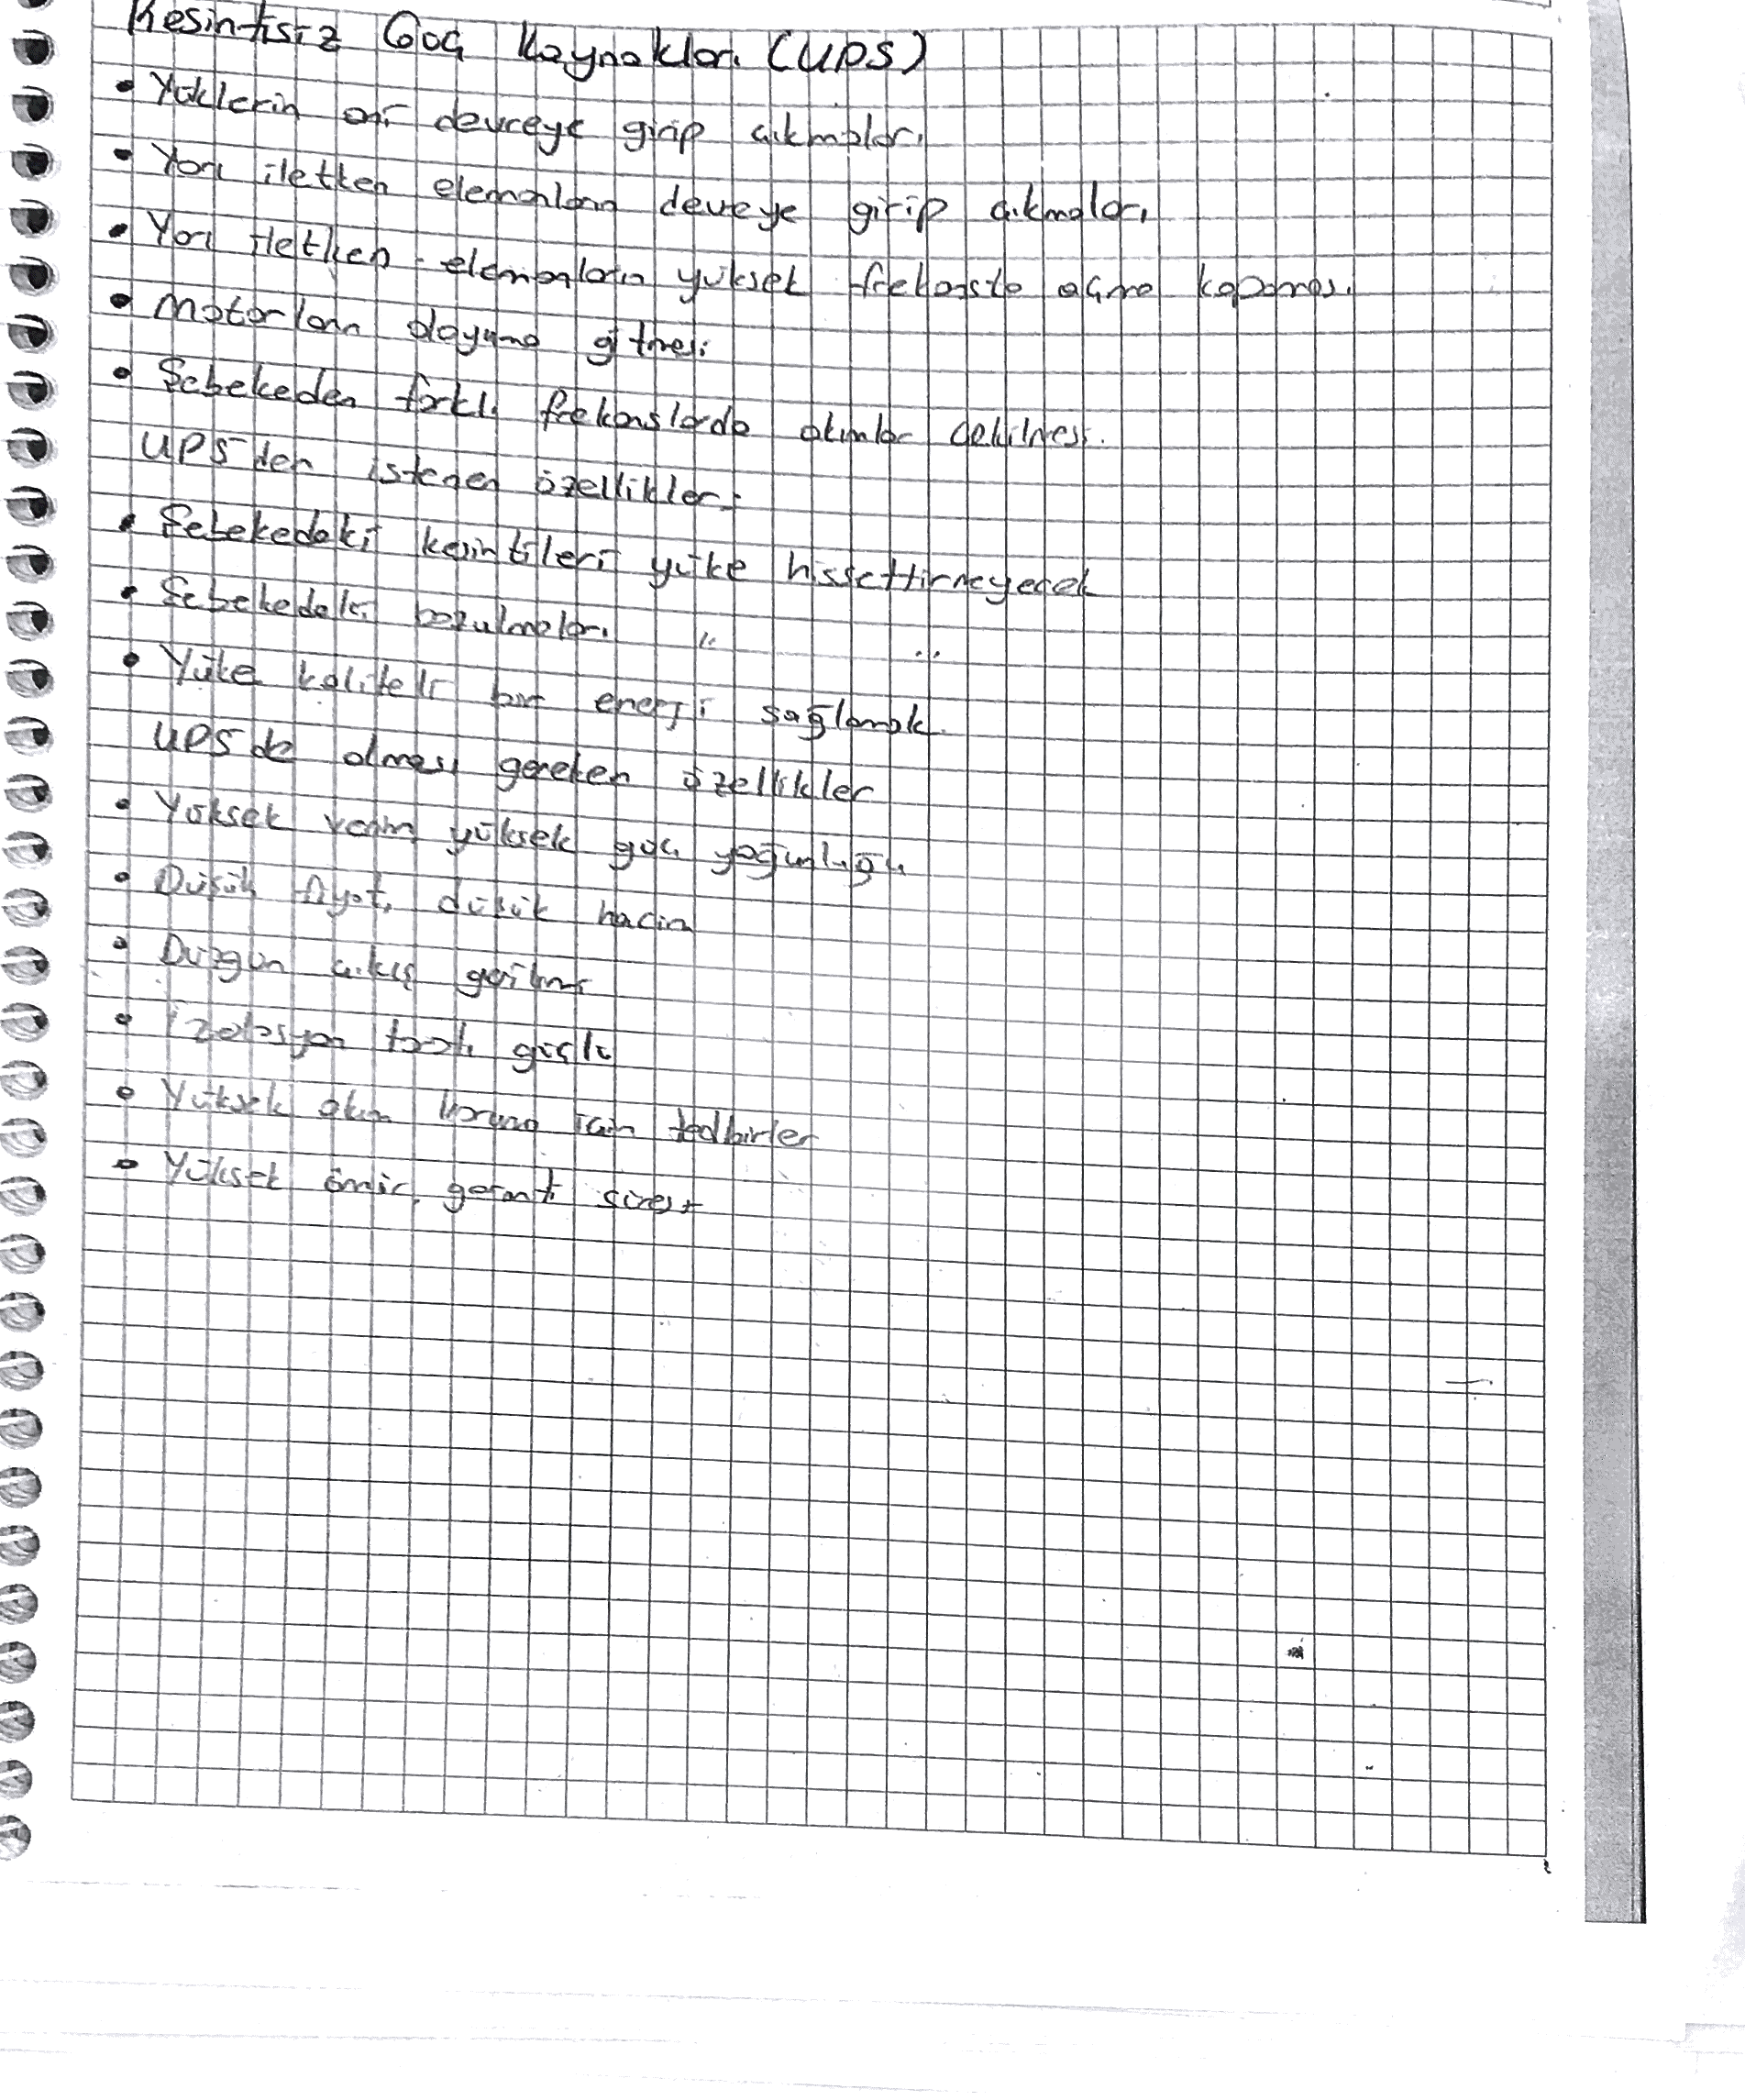 Kesintisiz Güç Kaynakları (UPS)
• Yüklerin ani devreye girip çıkmaları
• Yarı iletken elemanların devreye girip çıkmaları
• Yarı iletken elemanların yüksek frekansta açma kapaması
• Motorların doyuma gitmesi
• Şebekeden farklı frekanslarda akımlar çekilmesi.
UPS'den istenen özellikler:
• Şebekedeki kesintileri yüke hissettirmeyecek
• Şebekedeki bozulmaları " "
• Yüke kaliteli bir enerji sağlamak.
UPS de olması gereken özellikler
• Yüksek verim yüksek güç yoğunluğu
• Düşük fiyat, düşük hacim
• Düzgün çıkış gerilimi
• İzolasyon güçlü
• Yüksek akım koruma için tedbirler
• Yüksek ömür, garanti süresi